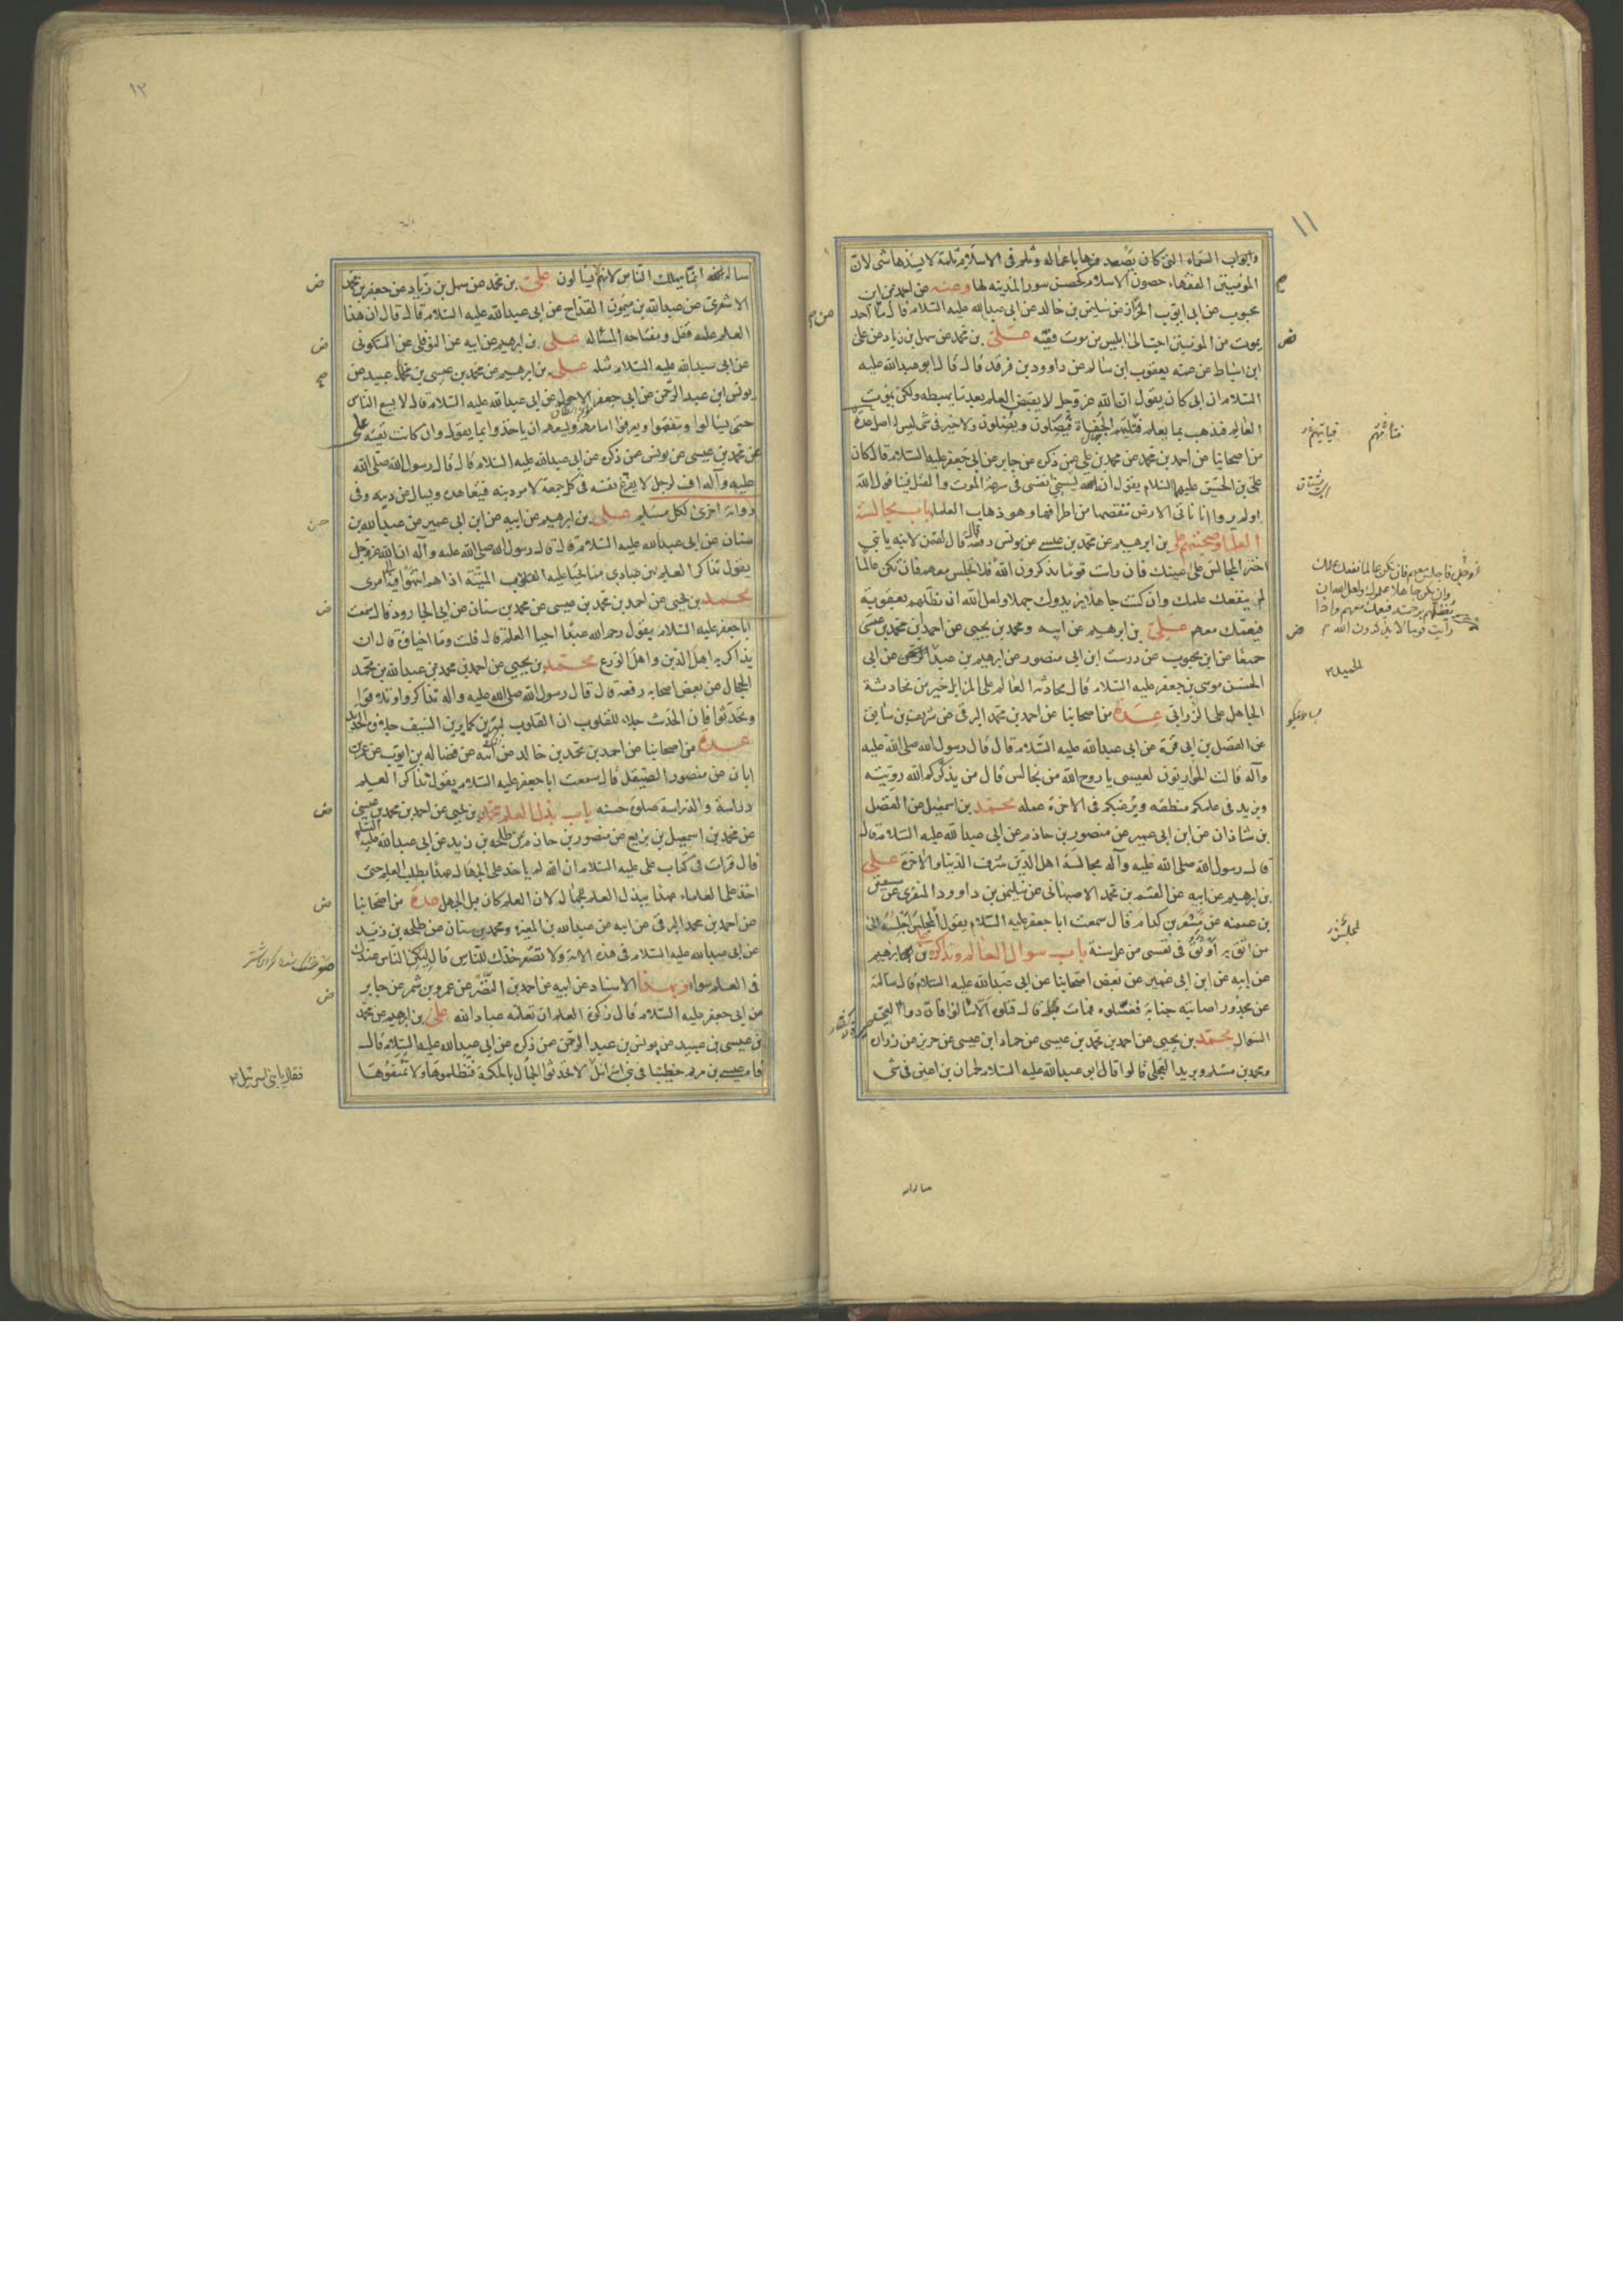 ١١
وابواب السماء التى كان يصعد فيها باعماله وثلم فى الاسلام ثلمة لا يسدها شى لان
المؤمنين الفقهاء حصون الاسلام كحصن سور المدينه لها وعنه عن احمد عن ابن
محبوب عن ابى ايوب الخزاز عن سليمن بن خالد عن ابى عبدالله عليه السلام قال ما احد
يموت من المؤمنين احب الى ابليس من موت فقيه على بن محمد عن سهل بن زياد عن على
ابن اسباط عن عمه يعقوب ابن سالم عن داوود بن فرقد قال قال ابو عبدالله عليه
السلام ان ابى كان يقول ان الله عز وجل لا يقبض العلم بعد ما يهبطه ولكن يموت
العالم فيذهب بما يعلم فتليهم الجفاة فيضلون ويضلون ولا خير فى شى ليس له اصل عدة
من اصحابنا عن احمد بن محمد عن محمد بن على عمن ذكره عن جابر عن ابى جعفر عليه السلام قال كان
على بن الحسين عليهما السلام يقول انه يسخى نفسى فى سرعة الموت والقتل فينا قول الله
اولم يروا انا ناتى الارض ننقصها من اطرافها وهو ذهاب العلما باب مجالسة
العلما وصحبتهم على بن ابرهيم عن محمد بن عيسى عن يونس رفعه قال قال لقمن لابنه يا بنى
اختر المجالس على عينك فان رات قوما يذكرون الله فلا تجلس معهم فان تكن عالما
لم ينفعك علمك وان كنت جاهلا يزيدوك جهلا ولعل الله ان يظلهم بعقوبة
فيعمك معهم على بن ابرهيم عن ابيه ومحمد بن يحيى عن احمد ابن محمد بن عيسى
جميعا عن ابن محبوب عن درست ابن ابى منصور عن ابرهيم بن عبد الحميد عن ابى
الحسن موسى بن جعفر عليه السلام قال محادثه العالم على المزابل خير من محادثة
الجاهل على الزرابى عدة من اصحابنا عن احمد بن محمد البرقى عن شريف بن سابق
عن الفضل بن ابى قرة عن ابى عبدالله عليه السلام قال قال رسول الله صلى الله عليه
وآله قالت الحواريون لعيسى يا روح الله من نجالس قال من يذكركم الله رويته
ويزيد فى علمكم منطقه ويرغبكم فى الاخرة عمله محمد بن اسمعيل عن الفضل
بن شاذان عن ابن ابى عمير عن منصور بن حازم عن ابى عبدالله عليه السلام قال
قال رسول الله صلى الله عليه وآله مجالسة اهل الدين شرف الدنيا والاخرة على
بن ابرهيم عن ابيه عن القسم بن محمد الاصبهانى عن سليمن بن داوود المنقرى عن سفين
بن عيينه عن مسعر بن كدام قال سمعت ابا جعفر عليه السلام يقول لمجلس اجلسه الى
من اثق به اوثق فى نفسى من عمل سنة باب سوال العالم وتذاكره على بن ابرهيم
عن ابيه عن ابن ابى عمير عن بعض اصحابنا عن ابى عبدالله عليه السلام قال سالته
عن مجدور اصابته جنابة فغسلوه فمات قال قتلوه الا سالوا فان دواء العى
السوال محمد بن يحيى عن احمد بن محمد بن عيسى عن حماد ابن عيسى عن حريز عن زراره
ومحمد بن مسلم وبريد العجلى قالوا قال ابو عبدالله عليه السلام لحمران بن اعين فى شى
عز وجل فاجلس معهم فان تكن عالما نفعك علمك
وان تكن جاهلا علموك ولعل الله ان
يظلهم برحمته فيعمك معهم واذا
رأيت قوما لا يذكرون الله
١٢
ساله عنه انما يهلك الناس لانهم لا يسالون على بن محمد عن سهل بن زياد عن جعفر بن محمد
الاشعرى عن عبدالله بن ميمون القداح عن ابى عبدالله عليه السلام قال قال ان هذا
العلم عليه قفل ومفتاحه المسئاله على بن ابرهيم عن ابيه عن النوفلى عن السكونى
عن ابى عبدالله عليه السلام مثله على بن ابرهيم عن محمد بن عيسى بن عبيد عن
يونس ابن عبد الرحمن عن ابى جعفر الاحول عن ابى عبدالله عليه السلام قال لا يسع الناس
حتى يسالوا ويتفقهوا ويعرفوا امامهم ويسعهم ان ياخذوا بما يقول وان كانت تقيه على
عن محمد بن عيسى عن يونس عمن ذكره عن ابى عبدالله عليه السلام قال قال رسول الله صلى الله
عليه وآله اف لرجل لا يفرغ نفسه فى كل جمعة لامر دينه فيتعاهده ويسال عن دينه وفى
رواية اخرى لكل مسلم على بن ابرهيم عن ابيه عن ابن ابى عمير عن عبدالله بن
سنان عن ابى عبدالله عليه السلام قال قال رسول الله صلى الله عليه وآله ان الله عز وجل
يقول تذاكر العلم بين عبادى مما تحيا عليه القلوب الميتة اذا هم انتهوا فيه الى امرى
محمد بن يحيى عن احمد بن محمد بن عيسى عن محمد بن سنان عن ابى الجارود قال سمعت
ابا جعفر عليه السلام يقول رحم الله عبدا احيا العلم قال قلت وما احياؤه قال ان
يذاكر به اهل الدين واهل الورع محمد بن يحيى عن احمد بن محمد عن عبدالله بن محمد
الحجال عن بعض اصحابه رفعه قال قال رسول الله صلى الله عليه واله تذاكروا وتلاقوا
وتحدثوا فان الحديث جلاء للقلوب ان القلوب لترين كما يرين السيف جلاؤه الحديث
عدة من اصحابنا عن احمد بن محمد بن خالد عن ابيه عن فضاله بن ايوب عن عمر بن
ابان عن منصور الصيقل قال سمعت ابا جعفر عليه السلام يقول تذاكر العلم
دراسة والدراسة صلوة حسنه باب بذل العلم محمد بن يحيى عن احمد بن محمد بن عيسى
عن محمد بن اسمعيل بن بزيع عن منصور بن حازم عن طلحه بن زيد عن ابى عبدالله عليه السلم
قال قرات فى كتاب على عليه السلام ان الله لم ياخذ على الجهال عهدا بطلب العلم حتى
اخذ على العلماء عهدا ببذل العلم للجهال لان العلم كان قبل الجهل عدة من اصحابنا
عن احمد بن محمد البرقى عن ابيه عن عبدالله بن المغيرة ومحمد بن سنان عن طلحه بن زيد
عن ابى عبدالله عليه السلام فى هذه الاية ولا تصعر خدك للناس قال ليكن الناس عندك
فى العلم سواء وبهذا الاسناد عن ابيه عن احمد بن النضر عن عمرو بن شمر عن جابر
عن ابى جعفر عليه السلام قال زكوة العلم ان تعلمه عباد الله على بن ابرهيم عن محمد
بن عيسى بن عبيد عن يونس بن عبد الرحمن عمن ذكره عن ابى عبدالله عليه السلام قال
قام عيسى بن مريم خطيبا فى بنى اسرائيل لا تحدثوا الجهال بالحكمة فتظلموها ولا تمنعوها
فقال يا بنى اسرئيل